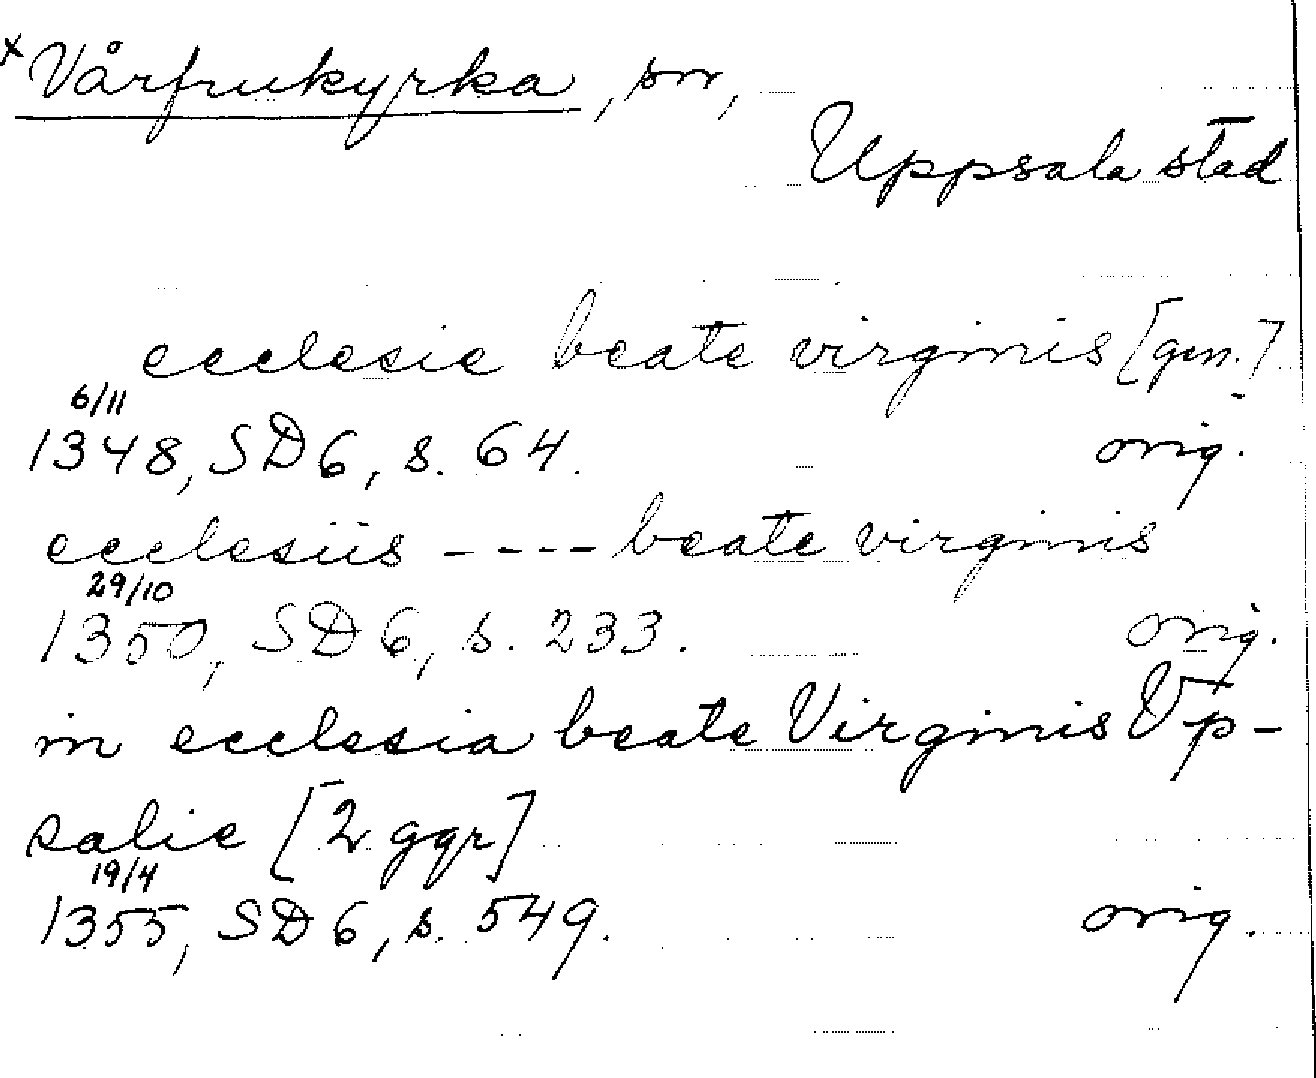 x Vårfrukyrka, sn,
Uppsala stad
ecclesie beate virginis [gen.]
6/11
1348, SD 6, s. 64. orig.
ecclesiis ---- beate virginis
29/10
1350, SD 6, s. 233. orig.
in ecclesia beate Virginis Vp-
salie [2 ggr]
19/4
1355, SD 6, s. 549. orig.